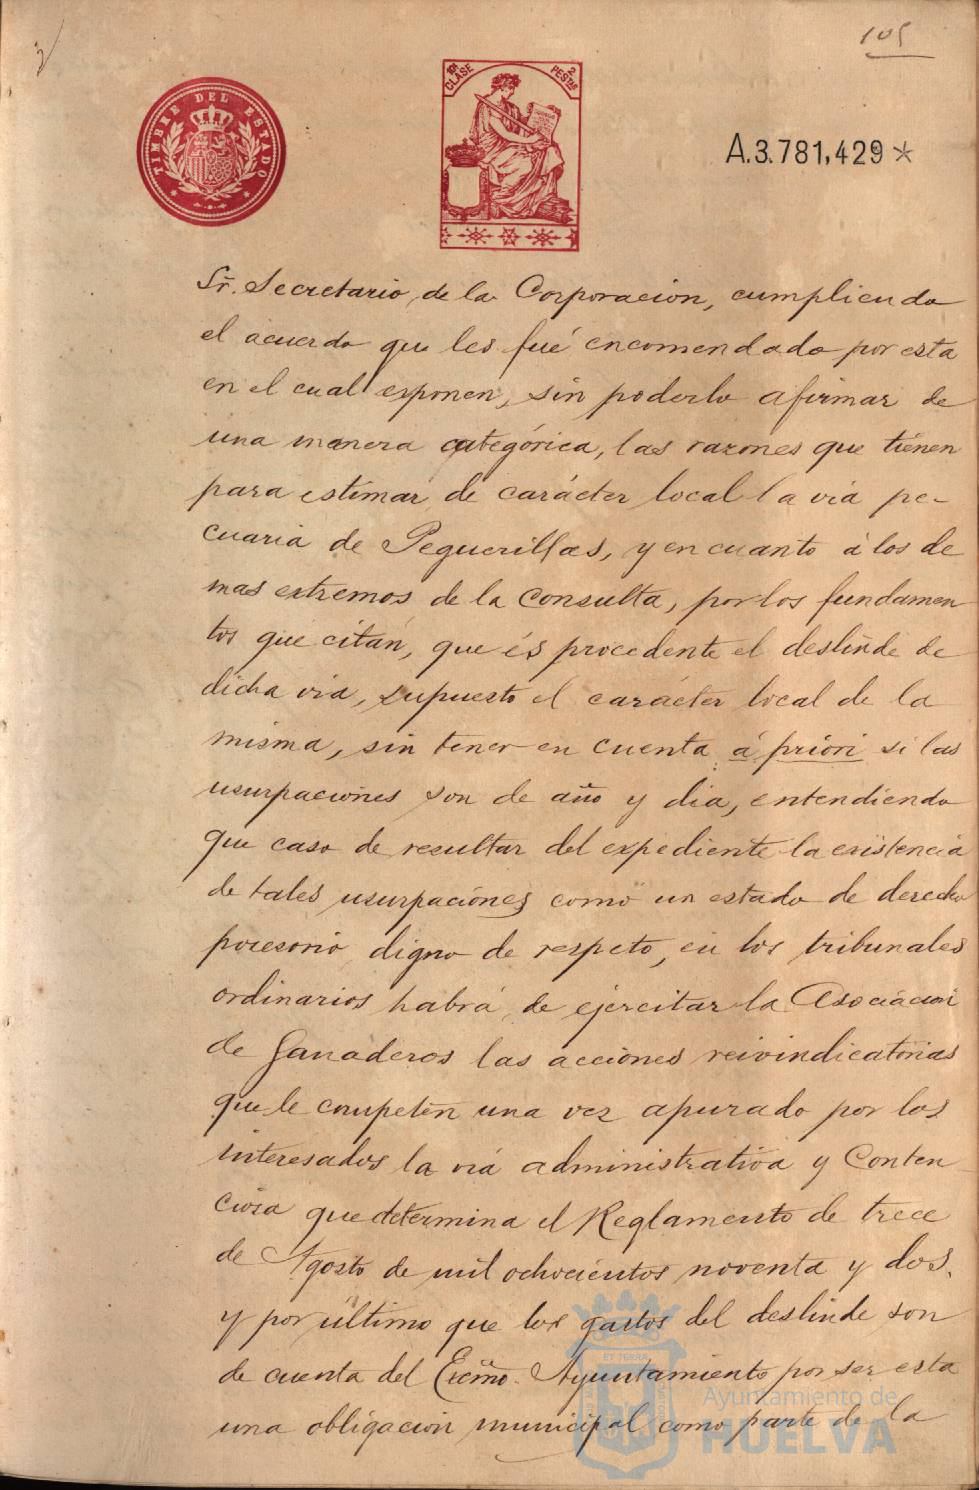 105
TIMBRE DEL ESTADO
10ª CLASE 2 PESTAS
A.3.781,429*
Sr. Secretario de la Corporacion, cumpliendo
el acuerdo que les fué encomendado por esta
en el cual exponen, sin poderlo afirmar de
una manera categórica, las razones que tienen
para estimar de carácter local la via pe-
cuaria de Peguerillas, y en cuanto á los de
mas extremos de la Consulta, por los fundamen
tos que citan, que és procedente el deslinde de
dicha via, supuesto el carácter local de la
misma, sin tener en cuenta á priori si las
usurpaciones son de año y dia, entendiendo
que caso de resultar del expediente la existencia
de tales usurpaciones como un estado de derecho
posesorio digno de respeto, en los tribunales
ordinarios habrá de ejercitar la Asociacion
de Ganaderos las acciones reivindicatorias
que le competen una vez apurado por los
interesados la via administrativa y Conten
ciosa que determina el Reglamento de trece
de Agosto de mil ochocientos noventa y dos.
y por último que los gastos del deslinde son
de cuenta del Excmo. Ayuntamiento por ser esta
una obligacion municipal como parte de la
Ayuntamiento de
HUELVA